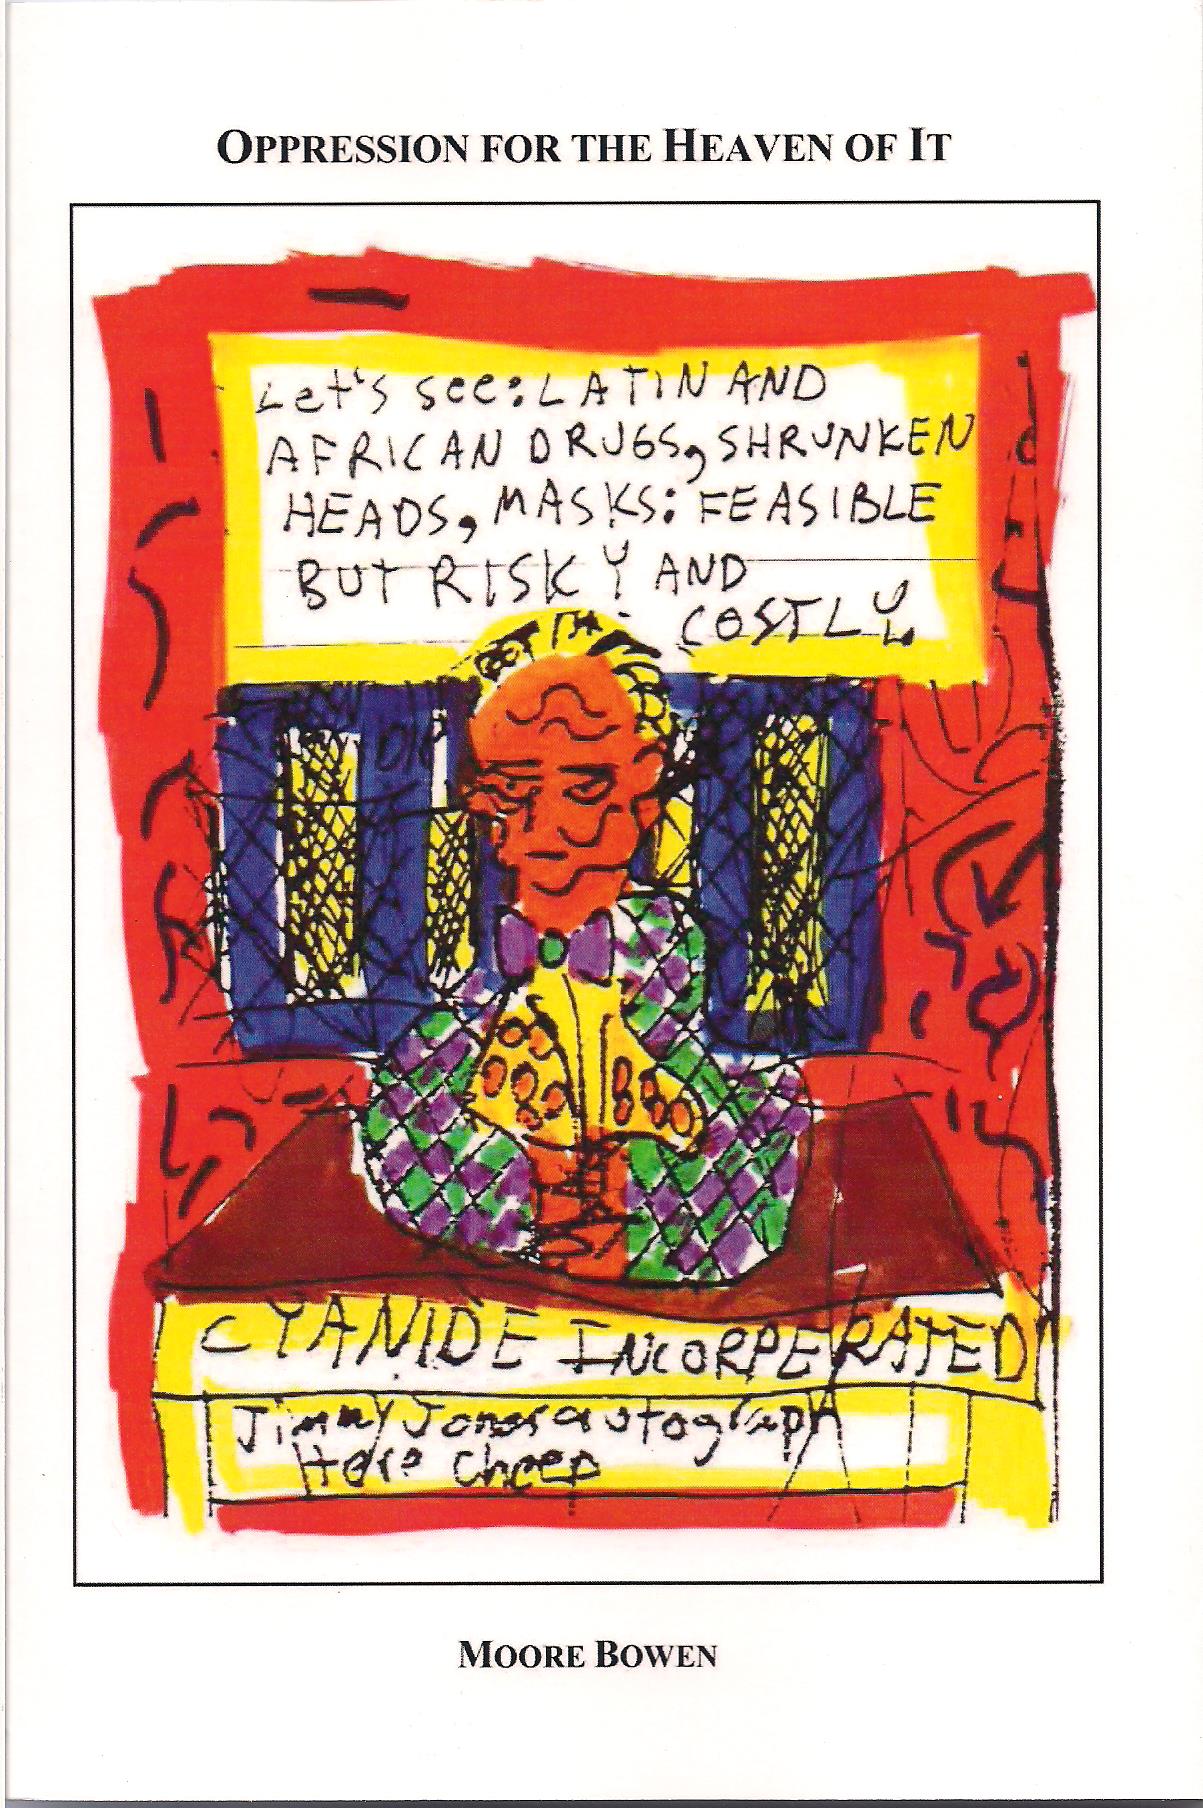 OPPRESSION FOR THE HEAVEN OF IT
Let's see: LATIN AND
AFRICAN DRUGS, SHRUNKEN
HEADS, MASKS: FEASIBLE
BUT RISKY AND
COSTLY
CYANIDE INCORPERATED
Jimmy Jones autograph
Here Cheep
MOORE BOWEN